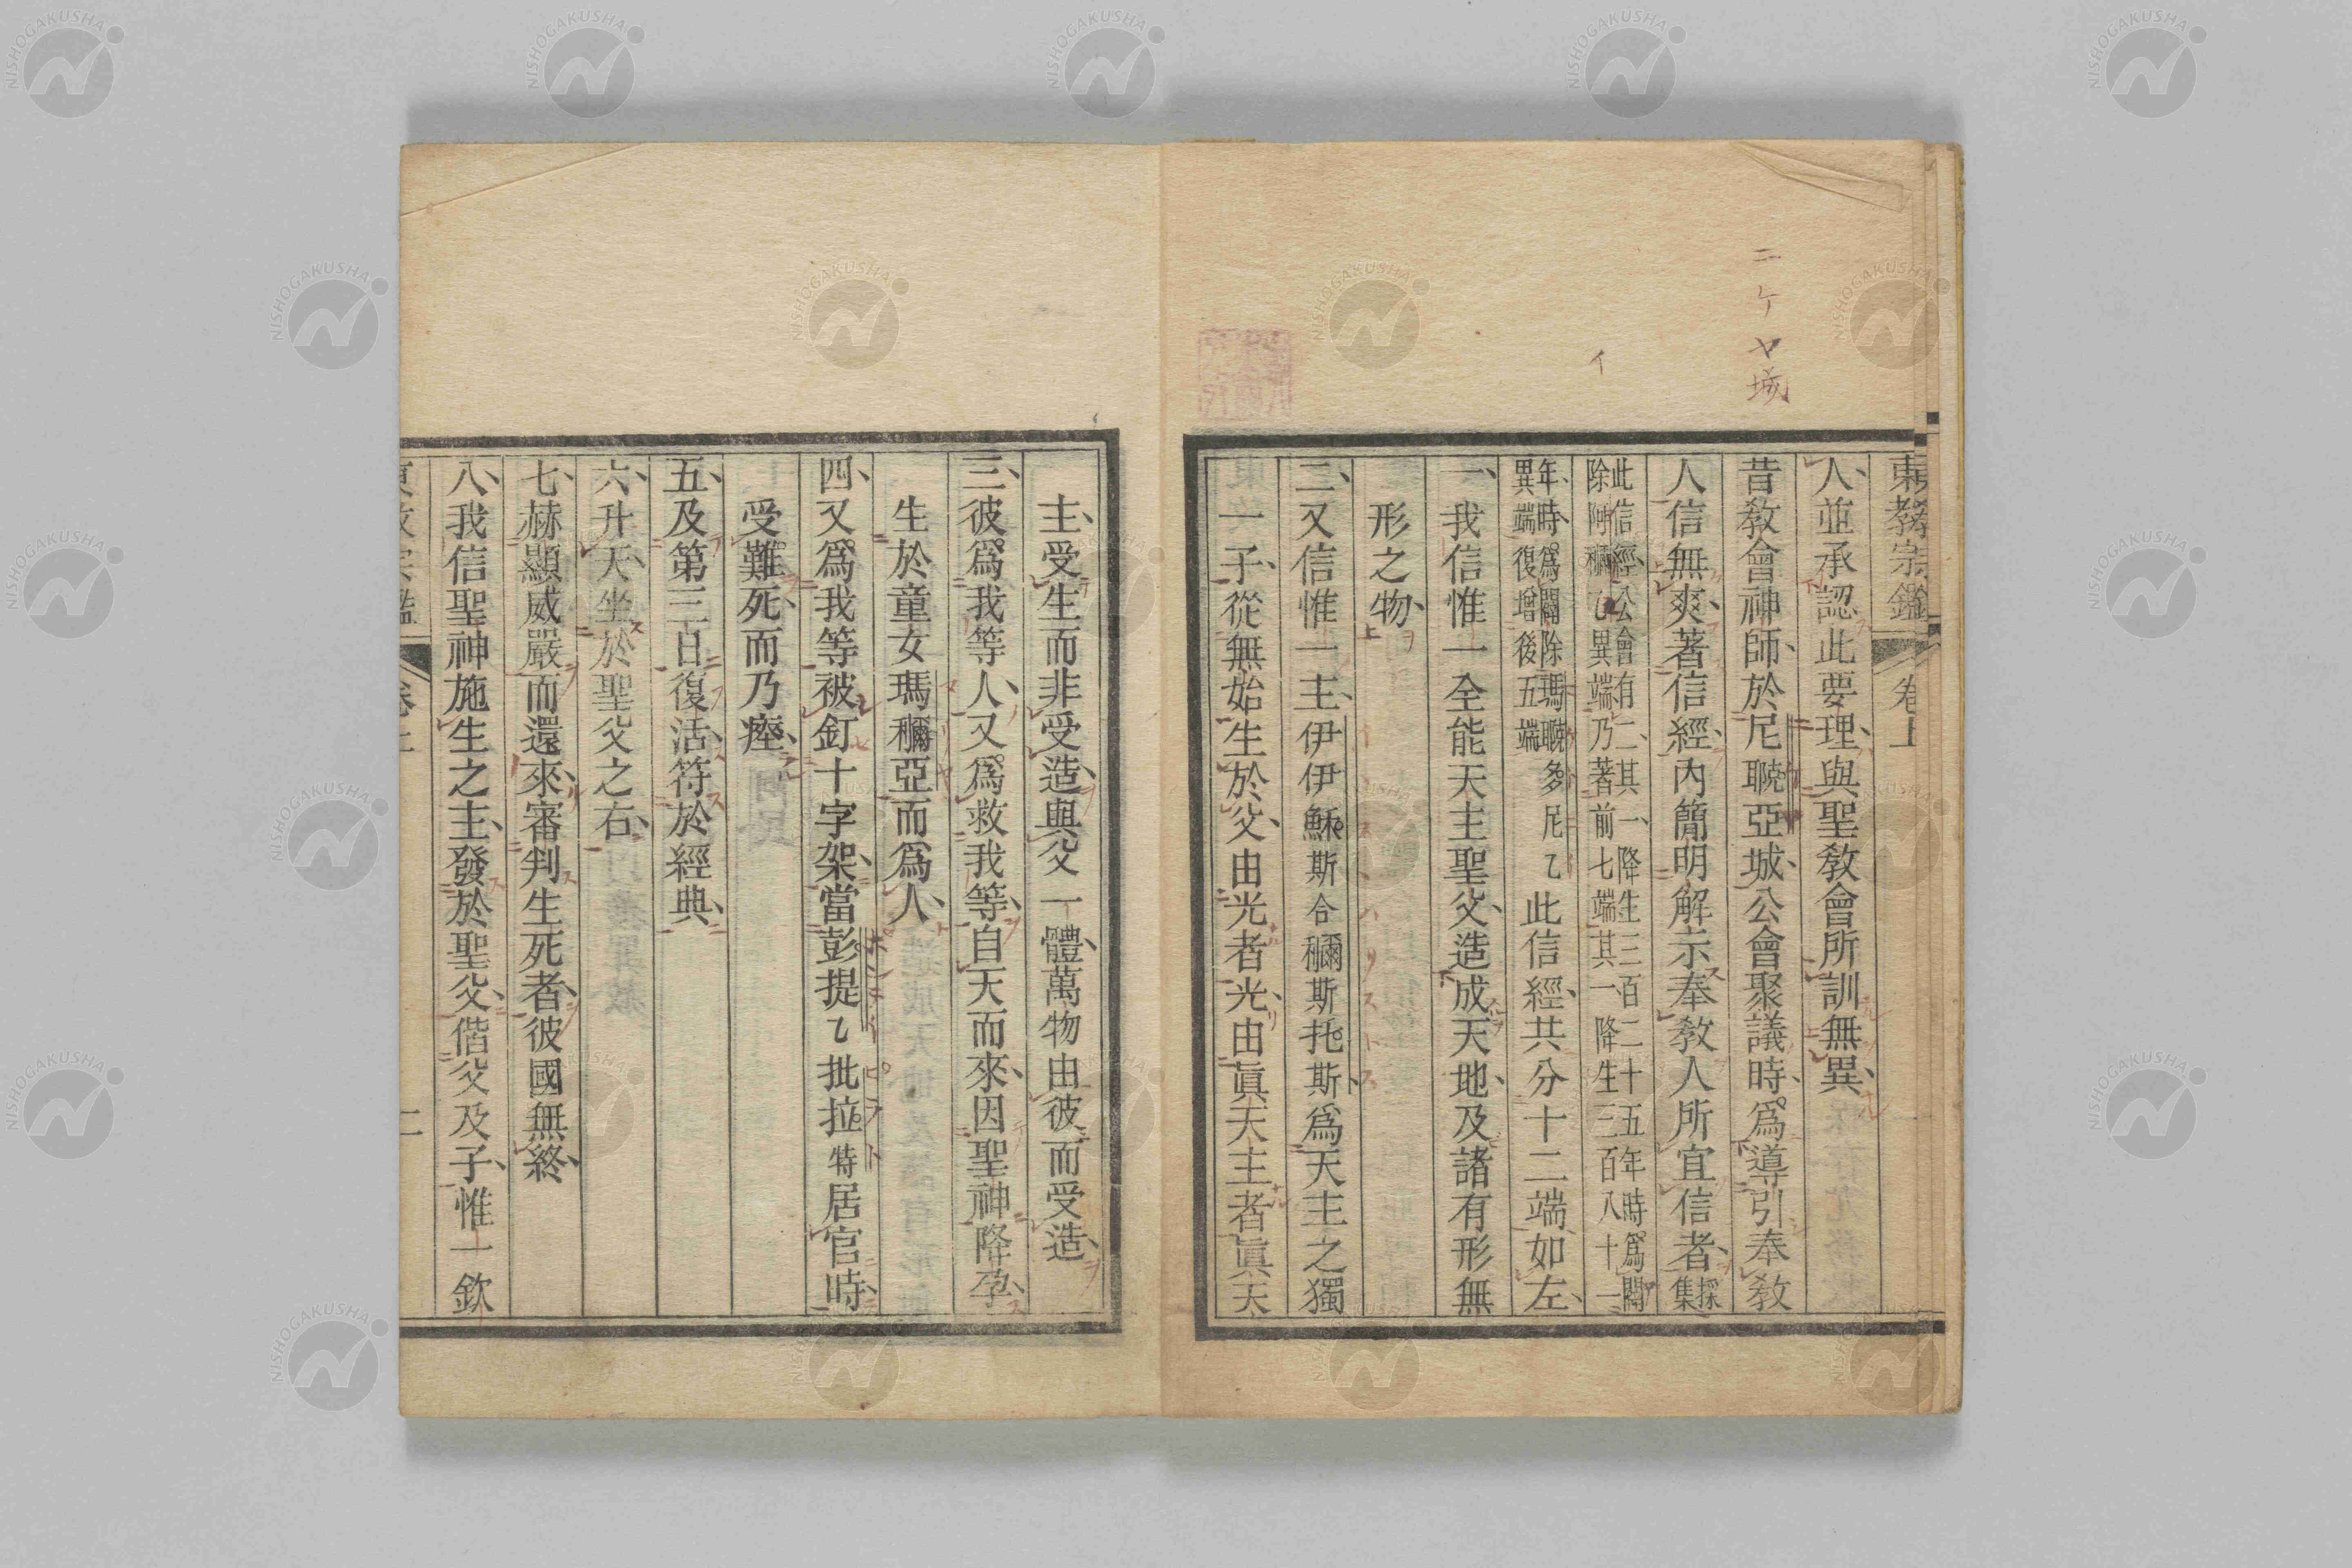 東教宗鑑 卷上
人、並承認此要理、與聖教會所訓無異、
昔教會神師、於尼聭亞城、公會聚議時、爲導引奉教
人信無爽、著信經、內簡明解示奉教人所宜信者、採集
此信經、公會有二、其一、降生三百二十五年時、爲闢
除阿穪乙異端、乃著前七端、其一降生三百八十一
年、時、爲闢除瑪聭多尼乙
異端、復增後五端
此信經、共分十二端、如左、
一、我信惟一全能天主聖父、造成天地、及諸有形無
形之物、
二、又信惟一主、伊伊穌斯合穪斯托斯、爲天主之獨
一子、從無始生於父、由光者光、由眞天主者眞天
主、受生而非受造、與父一體、萬物由彼而受造、
三、彼爲我等人、又爲救我等、自天而來、因聖神降孕、
生於童女瑪穪亞而爲人、
四、又爲我等被釘十字架、當彭提乙批拉特居官時、
受難死、而乃瘞、
五、及第三日復活、符於經典、
六、升天、坐於聖父之右、
七、赫顯威嚴而還來、審判生死者、彼國無終、
八、我信聖神施生之主、發於聖父、偕父及子、惟一欽
二
ニケヤ城
イ